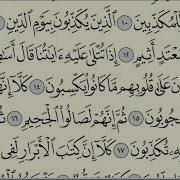 لِّلْمُكَذِّبِينَ ١٠ ٱلَّذِينَ يُكَذِّبُونَ بِيَوْمِ ٱلدِّينِ
مُعْتَدٍ أَثِيمٍ ١٢ إِذَا تُتْلَىٰ عَلَيْهِ ءَايَٰتُنَا قَالَ أَسَٰ
عَلَىٰ قُلُوبِهِم مَّا كَانُوا۟ يَكْسِبُونَ ١٤ كَلَّآ إِنَّ
حْجُوبُونَ ١٥ ثُمَّ إِنَّهُمْ لَصَالُوا۟ ٱلْجَحِيمِ ١٦
بِهِۦ تُكَذِّبُونَ ١٧ كَلَّآ إِنَّ كِتَٰبَ ٱلْأَبْرَارِ لَفِى